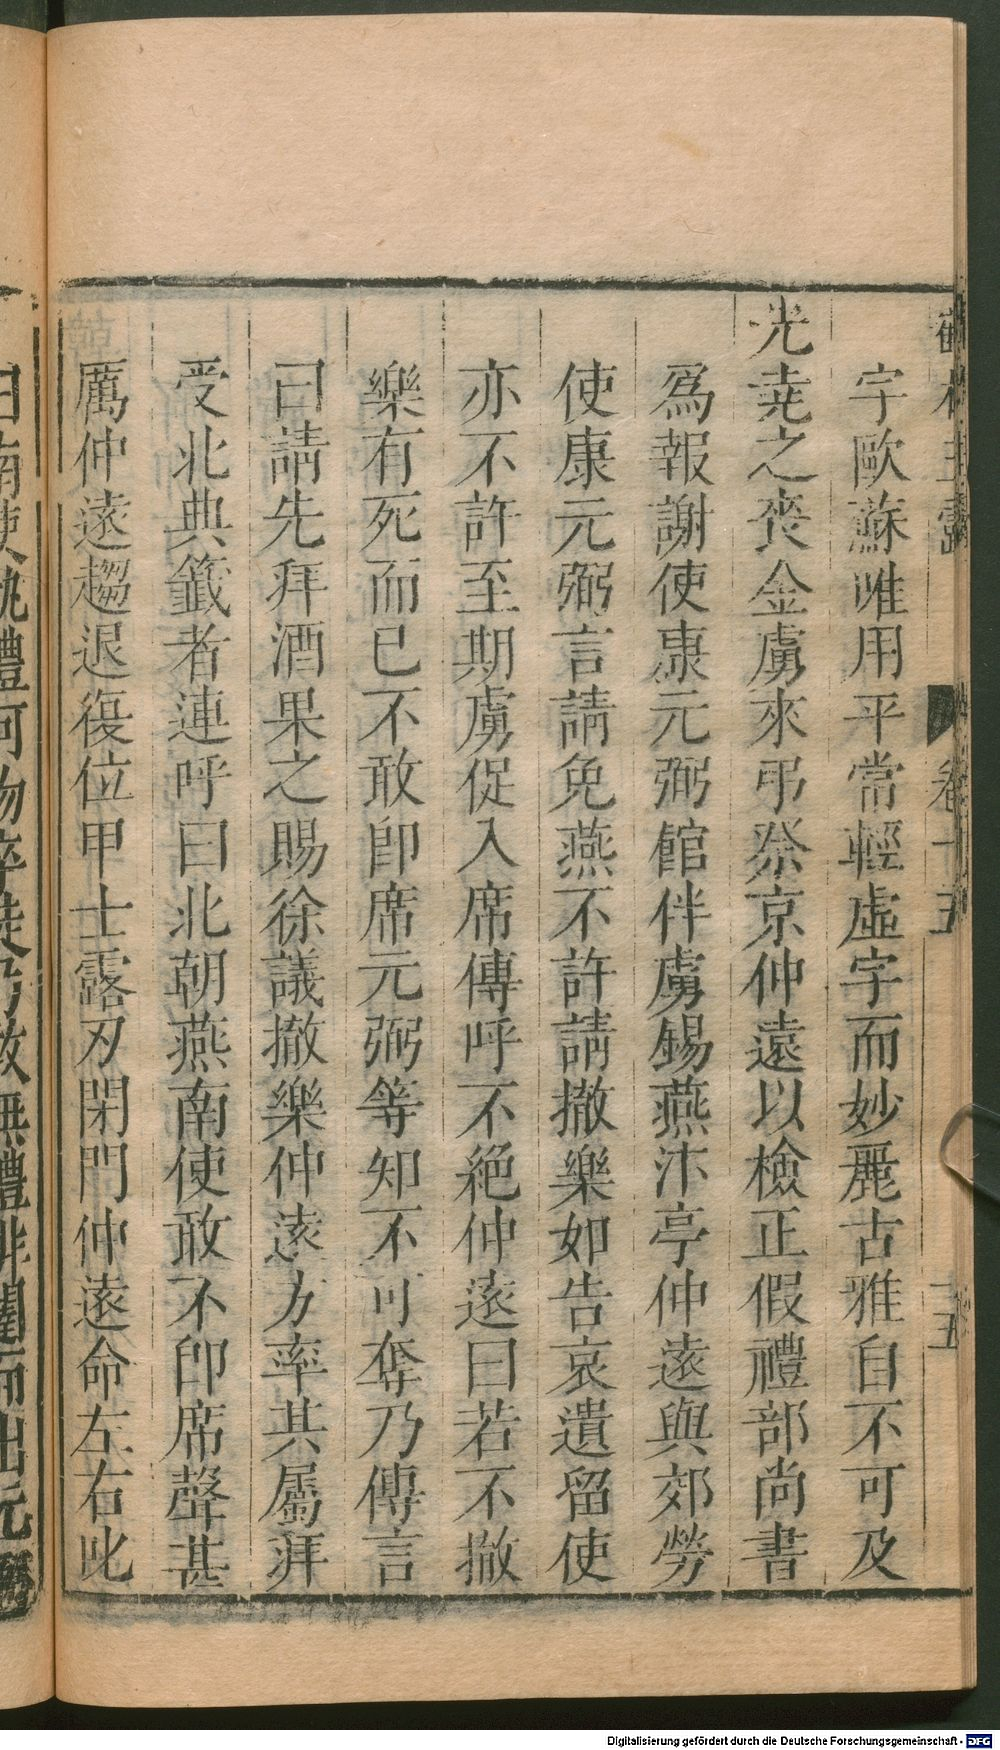 宇歐蘇唯用平常輕虛字而妙麗古雅自不可及
光堯之喪金虜來弔祭京仲遠以檢正假禮部尚書
爲報謝使康元弼館伴虜錫燕汴亭仲遠與郊勞
使康元弼言請免燕不許請撤樂如告哀遺留使
亦不許至期虜促入席傳呼不絕仲遠曰若不撤
樂有死而已不敢卽席元弼等知不可奪乃傳言
曰請先拜酒果之賜徐議撤樂仲遠方率其屬拜
受北典籤者連呼曰北朝燕南使敢不卽席聲甚
厲仲遠趨退復位甲士露刃閉門仲遠命左右叱
曰南使執禮何物卒徒乃敢無禮排闥而出元
卷十五
十五
Digitalisierung gefördert durch die Deutsche Forschungsgemeinschaft - DFG